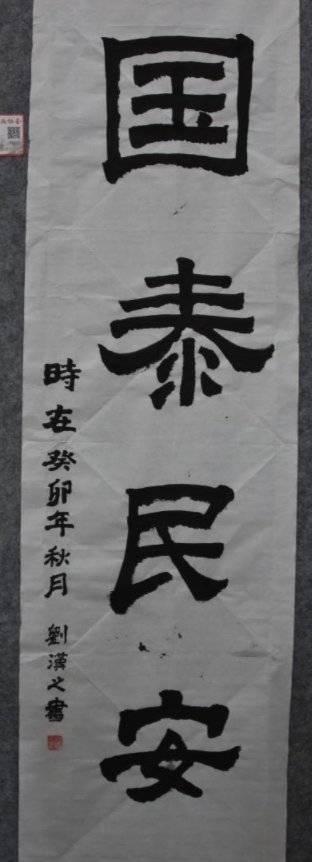 国泰民安
時在癸卯年秋月
劉漢之書